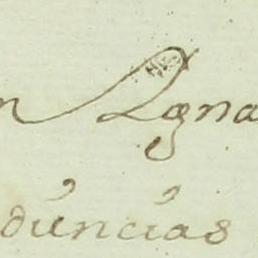 n Igna
duncias